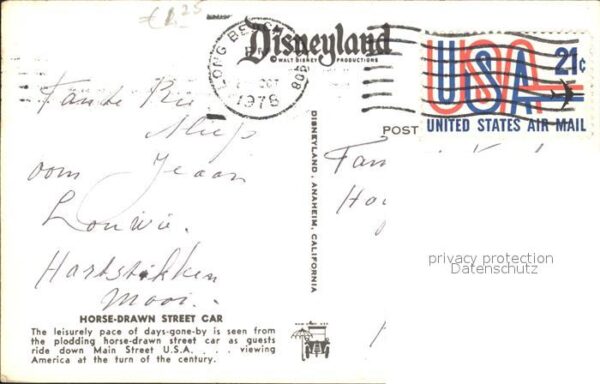 € 1.25
LONG BEACH
OCT
1978
908
Disneyland
© WALT DISNEY PRODUCTIONS
21¢
USA
UNITED STATES AIR MAIL
POST
DISNEYLAND . ANAHEIM, CALIFORNIA
Tante Rie
Miep
oom Jeaan
Louwie.
Hartstikken
Mooi..
Fam
privacy protection
Datenschutz
HORSE-DRAWN STREET CAR
The leisurely pace of days-gone-by is seen from
the plodding horse-drawn street car as guests
ride down Main Street U.S.A. . . . viewing
America at the turn of the century.